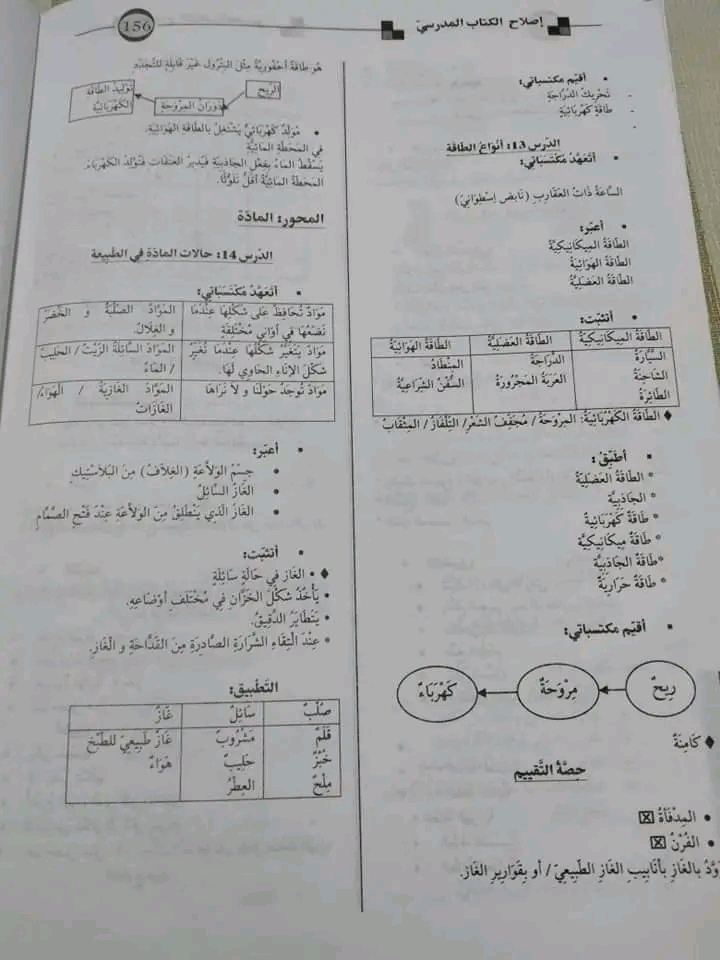 اصلاح الكتاب المدرسيّ
156
• أقيّم مكتسباتي:
- تَحْرِيكُ الدَّرَّاجَةِ
- طَاقَةٌ كَهْرَبَائِيَّةٌ
-
الدّرس 13: أنواع الطاقة
• أتعهّد مكتسباتي:
السَّاعَةُ ذَاتُ العَقَارِبِ (نَابِض إِسْطِوَانِيّ)
• أعبّر:
الطَّاقَةُ المِيكَانِيكِيَّةُ
الطَّاقَةُ الهَوَائِيَّةُ
الطَّاقَةُ العَضَلِيَّةُ
• أتثبّت:
الطَّاقَةُ المِيكَانِيكِيَّةُ الطَّاقَةُ العَضَلِيَّةُ الطَّاقَةُ الهَوَائِيَّةُ
السَّيَّارَةُ الدَّرَّاجَةُ المِنْطَادُ
الشَّاحِنَةُ العَرَبَةُ المَجْرُورَةُ السُّفُنُ الشِّرَاعِيَّةُ
الطَّائِرَةُ
♦ الطَّاقَةُ الكَهْرَبَائِيَّةُ: المِرْوَحَةُ / مُجَفِّفُ الشَّعْرِ/ التِّلْفَازُ / المِثْقَابُ
• أطبّق:
* الطَّاقَةُ العَضَلِيَّةُ
* الجَاذِبِيَّةُ
* طَاقَةٌ كَهْرَبَائِيَّةٌ
* طَاقَةٌ مِيكَانِيكِيَّةٌ
*طَاقَةُ الجَاذِبِيَّةِ
* طَاقَةٌ حَرَارِيَّةٌ
• أقيّم مكتسباتي:
رِيحٌ مِرْوَحَةٌ كَهْرَبَاءٌ
♦ كَامِنَةٌ
حصّة التّقييم
• المِدْفَأَةُ ☒
• الفُرْنُ ☒
بِالغَازِ بِأَنَابِيبِ الغَازِ الطَّبِيعِيّ / أو بِقَوَارِيرِ الغَازِ.
هُوَ طَاقَةٌ أُحْفُورِيَّةٌ مِثْلَ البِتْرُولِ غَيْرُ قَابِلَةٍ لِلتَّجَدُّدِ
الرِّيحُ
دَوَرَانُ المِرْوَحَةِ
تَوْلِيدُ الطَّاقَةِ
الكَهْرَبَائِيَّةِ
• مُوَلِّدٌ كَهْرَبَائِيٌّ يَشْتَغِلُ بِالطَّاقَةِ الهَوَائِيَّةِ.
فِي المَحَطَّةِ المَائِيَّةِ
يَسْقُطُ المَاءُ بِفِعْلِ الجَاذِبِيَّةِ فَيُدِيرُ العَنَفَاتِ فَتُوَلِّدُ الكَهْرَبَاءَ.
المَحَطَّةُ المَائِيَّةُ أَقَلُّ تَلَوُّثًا.
المحور: المادّة
الدّرس 14: حالات المادّة في الطّبيعة
• أتعهّد مكتسباتي:
مَوَادٌّ تُحَافِظُ عَلَى شَكْلِهَا عِنْدَمَا المَوَادُّ الصَّلْبَةُ و الخُضَرُ
نَضَعُهَا فِي أَوَانِي مُخْتَلِفَةٍ و الغِلَالُ.
مَوَادٌّ يَتَغَيَّرُ شَكْلُهَا عِنْدَمَا نُغَيِّرُ المَوَادُّ السَّائِلَةُ الزَّيْتُ / الحَلِيبُ
شَكْلَ الإِنَاءِ الحَاوِي لَهَا. / المَاءُ
مَوَادٌّ تُوجَدُ حَوْلَنَا و لَا نَرَاهَا المَوَادُّ الغَازِيَّةُ / الهَوَاءُ/
الغَازَاتُ
• أعبّر:
• جِسْمُ الوَلَّاعَةِ (الغِلَافُ) مِنَ البْلَاسْتِيكِ
• الغَازُ السَّائِلُ
• الغَازُ الَّذِي يَنْطَلِقُ مِنَ الوَلَّاعَةِ عِنْدَ فَتْحِ الصَّمَّامِ
• أتثبّت:
♦ • الغَازُ فِي حَالَةٍ سَائِلَةٍ
• يَأْخُذُ شَكْلَ الخَزَّانِ فِي مُخْتَلَفِ أَوْضَاعِهِ.
• يَتَطَايَرُ الدَّقِيقُ.
* عِنْدَ الْتِقَاءِ الشَّرَارَةِ الصَّادِرَةِ مِنَ القَدَّاحَةِ و الغَازِ.
التّطبيق:
صَلْبٌ سَائِلٌ غَازٌ
قَلَمٌ مَشْرُوبٌ غَازٌ طَبِيعِيٌّ للطَّبْخِ
خُبْزٌ حَلِيبٌ هَوَاءٌ
مِلْحٌ العِطْرُ